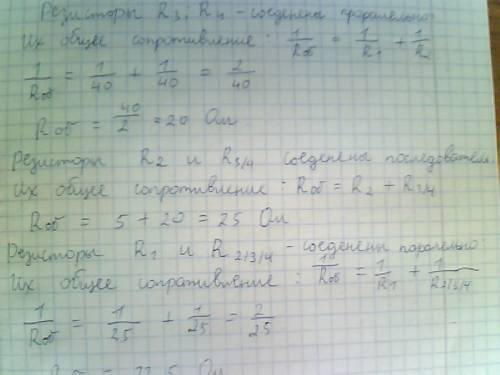 Резисторы R3 и R4 - соеденены проралельно
Их общее сопротивление : 1/Rоб = 1/R1 + 1/R
1/Rоб = 1/40 + 1/40 = 2/40
Rоб = 40/2 = 20 Ом
Резисторы R2 и R3/4 соеденены последовател
Их общее сопротивление : Rоб = R2 + R3/4
Rоб = 5 + 20 = 25 Ом
Резисторы R1 и R2/3/4 - соеденены паролельно
Их общее сопративление : 1/Rоб = 1/R1 + 1/R2/3/4
1/Rоб = 1/25 + 1/25 = 2/25